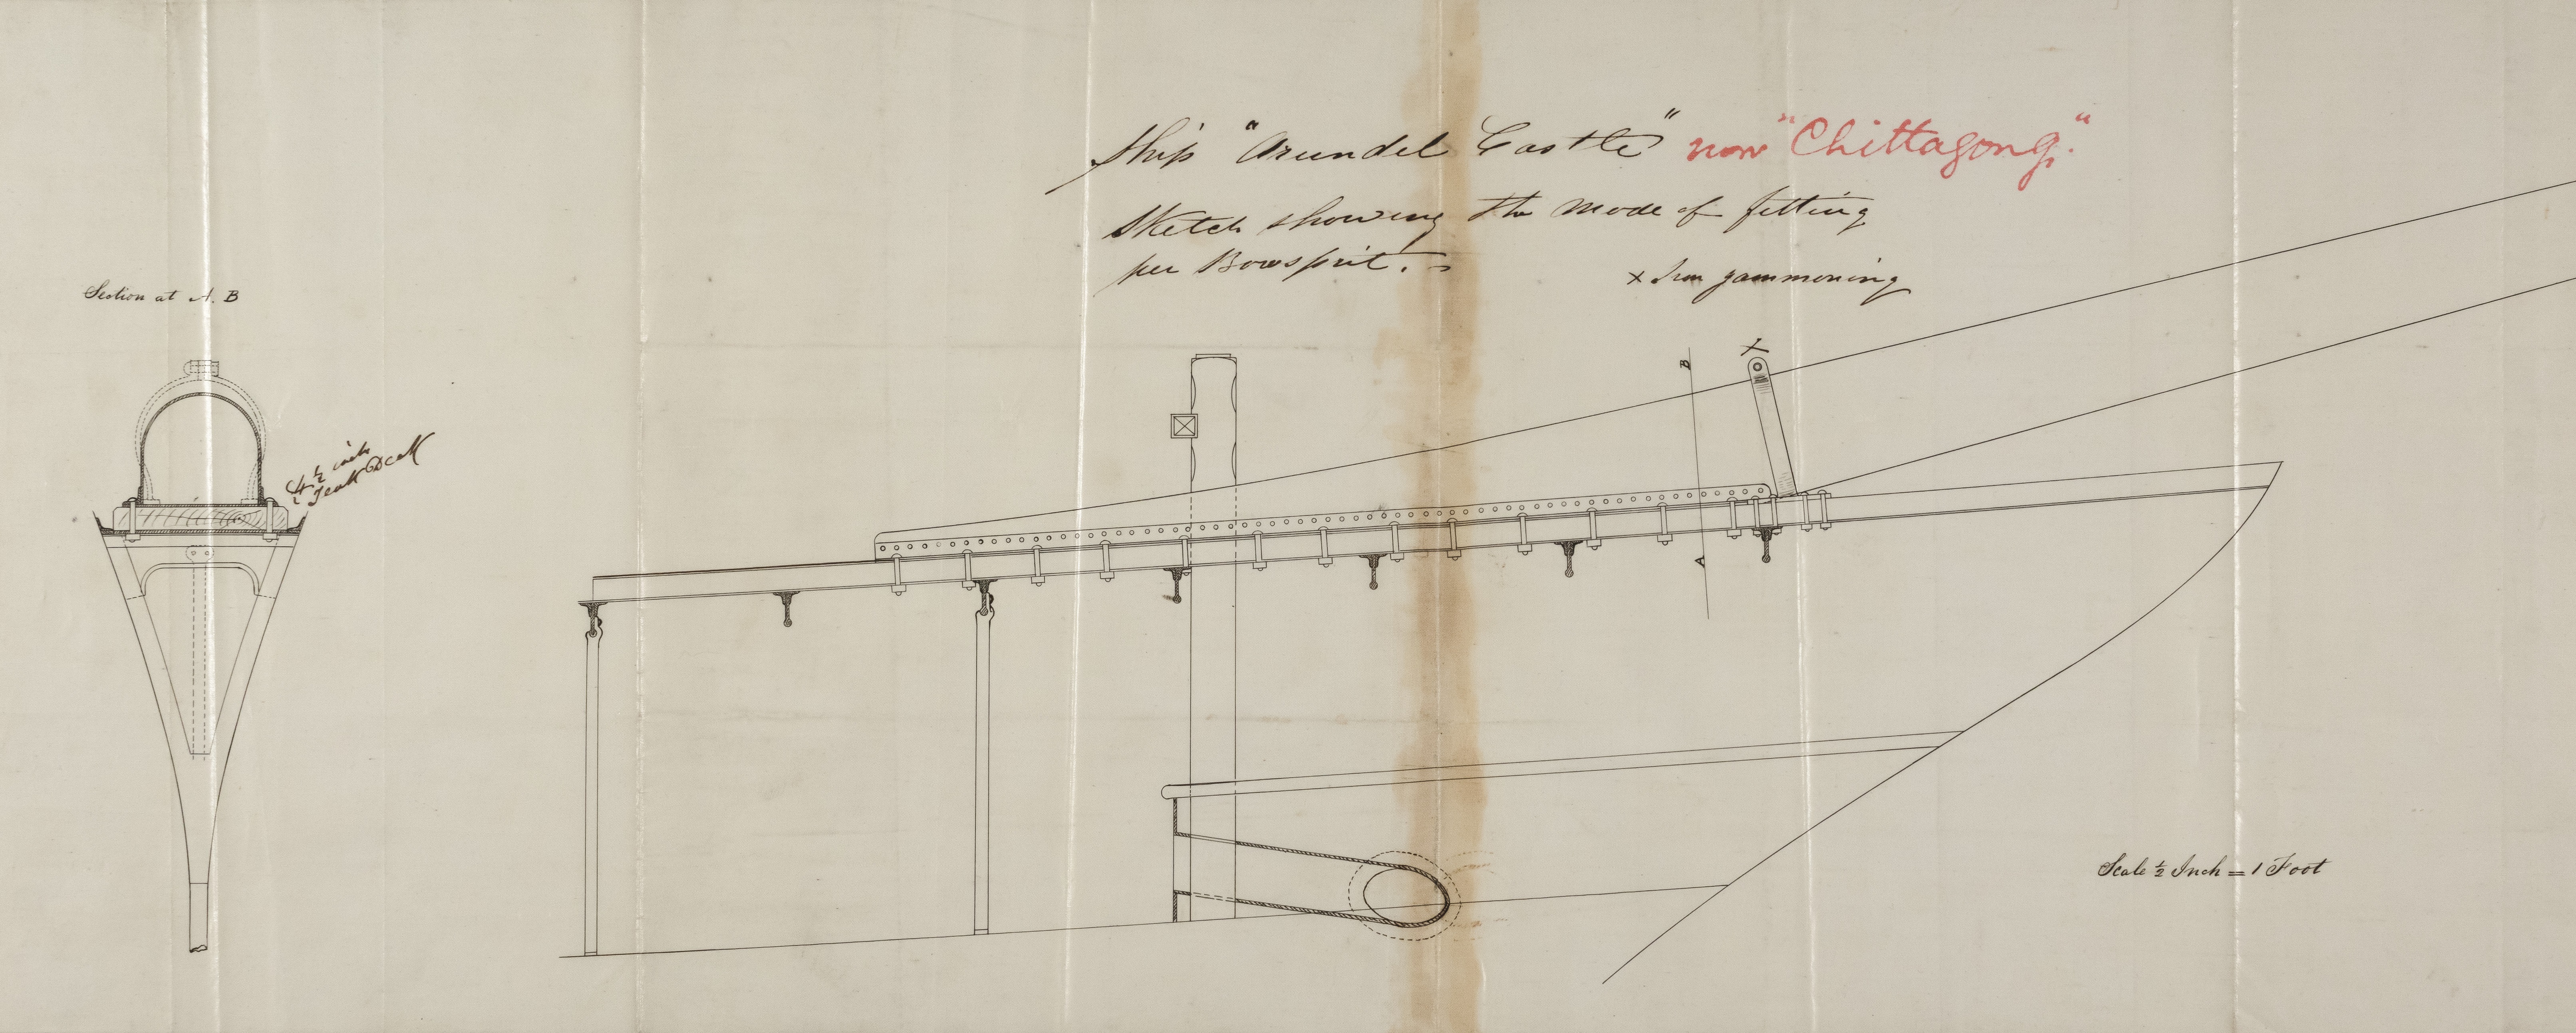 Ship "Arundel Castle" now "Chittagong."
Sketch showing the mode of fitting
per Bowsprit. =
x Iron gammoning
Section at A. B
4 1/2 inch
Teak Deck
B
X
A
Scale 1/2 Inch = 1 Foot